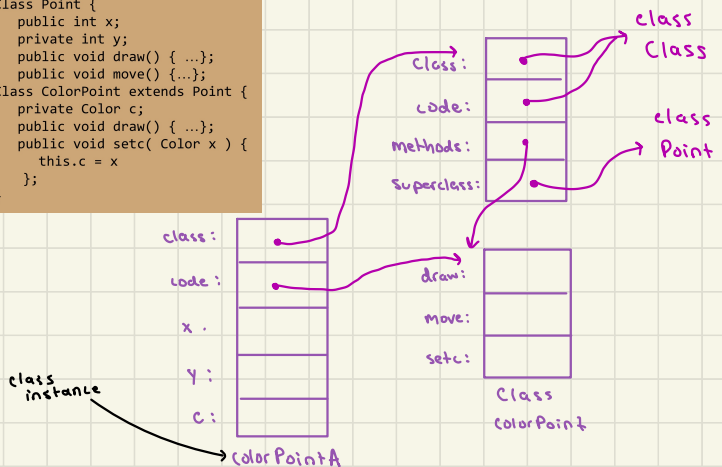 Class Point {
public int x;
private int y;
public void draw() { ...};
public void move() {...};
Class ColorPoint extends Point {
private Color c;
public void draw() { ...};
public void setc( Color x ) {
this.c = x
};
class
Class
Class:
code:
methods:
superclass:
class
Point
class:
code:
x .
y :
c:
colorPointA
class
instance
draw:
move:
setc:
Class
ColorPoint